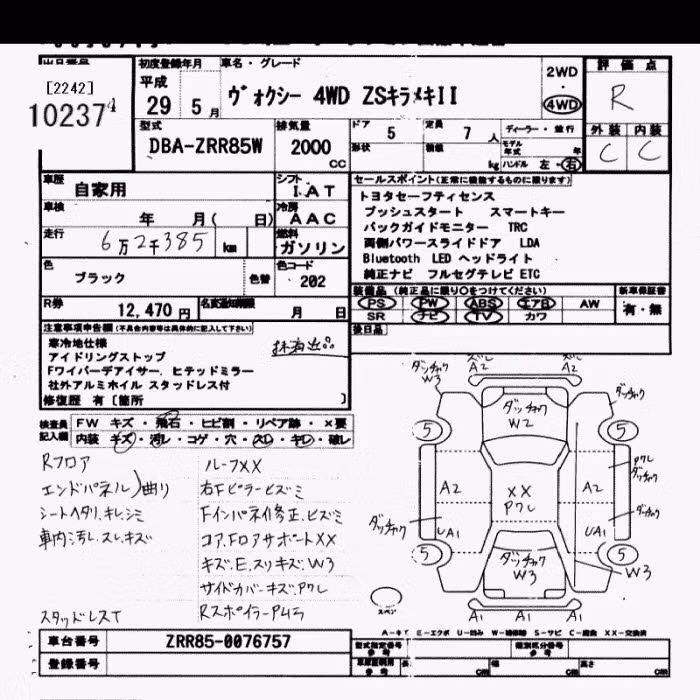 出品番号
[2242]
102374
初度登録年月
平成
29 5 月
車名・グレード
ヴォクシー 4WD ZSキラメキII
2WD
4WD
評価点
R
外装 内装
C C
型式
DBA-ZRR85W
排気量
2000
CC
ドア 5
定員 7 人
形状
積載 kg
ディーラー・並行
モデル年式 年
ハンドル 左・右
車歴
自家用
シフト
I.AT
車検
年 月( 日)
冷房
AAC
走行
6万2千385 km
燃料
ガソリン
色
ブラック
色替
色コード
202
R券
12,470 円
名変通知期限
月 日
セールスポイント(正常に機能するものに限ります)
トヨタセーフティセンス
プッシュスタート スマートキー
バックガイドモニター TRC
両側パワースライドドア LDA
Bluetooth LED ヘッドライト
純正ナビ フルセグテレビ ETC
装備品(純正品に限り○をつけてください)
PS PW ABS エアB AW
SR ナビ TV カワ
新車保証書
有・無
後日品
注意事項申告欄(不具合内容等は具体的に記入して下さい)
寒冷地仕様
アイドリングストップ
Fワイパーデアイサー、ヒテッドミラー
社外アルミホイル スタッドレス付
修復歴 有 [箇所 ]
検査員
記入欄
FW キズ・飛石・ヒビ割・リペア跡・×要
内装 キズ・汚レ・コゲ・穴・スレ・キレ・破レ
Rフロア
エンドパネル)曲り
シートヘタリ、キレ、シミ
車内汚レ、スレ、キズ
スタッドレスT
ルーフXX
右Fピラービズミ
Fインパネ修正、ビズミ
コア、FロアサポートXX
キズ、E、スリキズ、W3
サイドカバーキズ、Pワレ
RスポイラーPムラ
ダッチャク
W3
ズレ
A2
ズレ
A2
ダッチャク
5
ダッチャク
W2
5
A2
XX
Pワレ
A2
Pワレ
ダッチャク
ダッチャク
UA1
UA1
ダッチャク
5
ダッチャク
W3
5
W3
スペア
A1
A1
A1
A-キズ E-エクボ U-凹み W-補修跡 S-サビ C-腐食 XX-交換済
車台番号
ZRR85-0076757
登録番号
型式指定番号
参考
類別区分番号
参考
車庫証明用
参考
長 cm 幅 cm 高さ cm